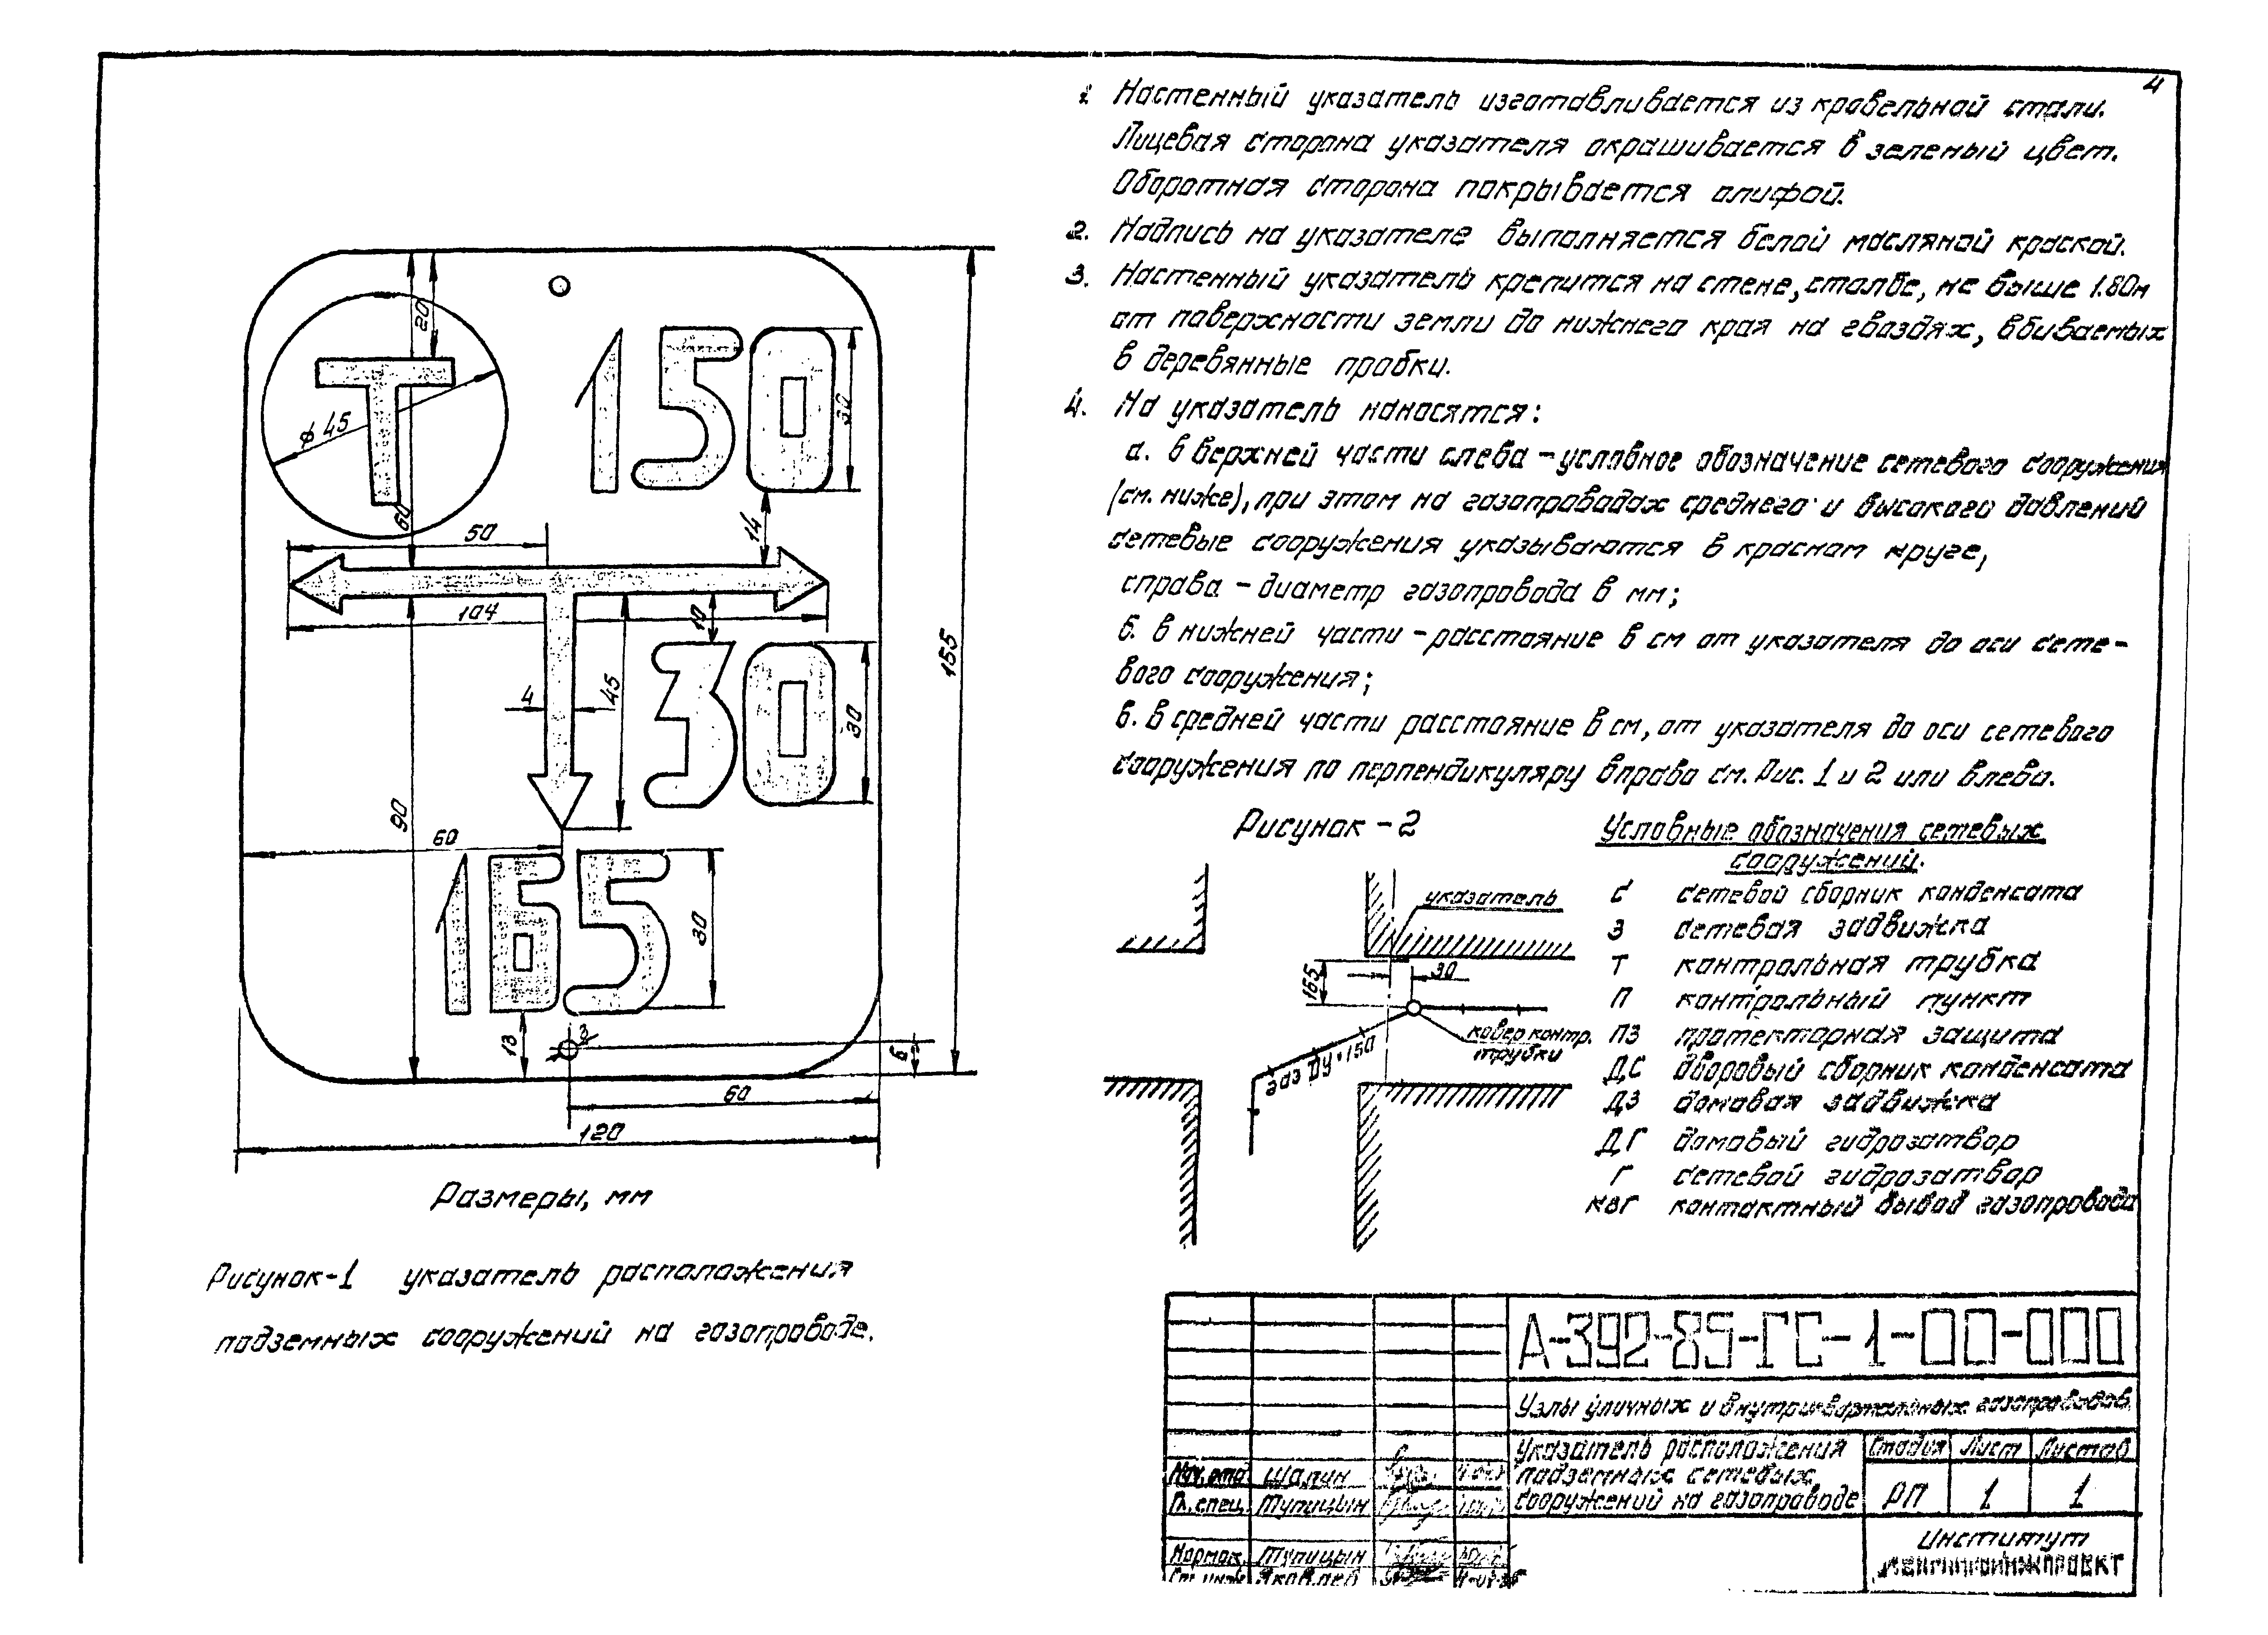 4
1 Настенный указатель изготавливается из кровельной стали.
Лицевая сторона указателя окрашивается в зеленый цвет.
Оборотная сторона покрывается олифой.
2. Надпись на указателе выполняется белой масляной краской.
3. Настенный указатель крепится на стене, столбе, не выше 1.80м
от поверхности земли до нижнего края на гвоздях, вбиваемых
в деревянные пробки.
4. На указатель наносятся:
а. в верхней части слева – условное обозначение сетевого сооружения
(см. ниже), при этом на газопроводах среднего и высокого давлений
сетевые сооружения указываются в красном круге,
справа – диаметр газопровода в мм;
б. в нижней части – расстояние в см от указателя до оси сете-
вого сооружения;
в. в средней части расстояние в см, от указателя до оси сетевого
сооружения по перпендикуляру вправо см. Рис. 1 и 2 или влево.
Т
150
30
165
20
ф 45
60
30
14
50
104
10
4
45
30
155
90
60
30
13
3
6
60
120
Размеры, мм
Рисунок-1 указатель расположения
подземных сооружений на газопроводе.
Рисунок – 2
указатель
165
30
ковер контр.
трубки
газ Ду*150
Условные обозначения сетевых
сооружений.
С сетевой сборник конденсата
З сетевая задвижка
Т контрольная трубка
П контрольный пункт
ПЗ протекторная защита
ДС дворовый сборник конденсата
ДЗ домовая задвижка
ДГ домовый гидрозатвор
Г сетевой гидрозатвор
КВГ контактный вывод газопровода
А-392-85-ГС-1-00-000
Узлы уличных и внутриквартальных газопроводов
Указатель расположения
подземных сетевых
сооружений на газопроводе
Стадия Лист Листов
РП 1 1
Нач. отд. Шалин
Гл. спец. Тупицын
Нормок. Тупицын
Ст. инж. Яковлев
Институт